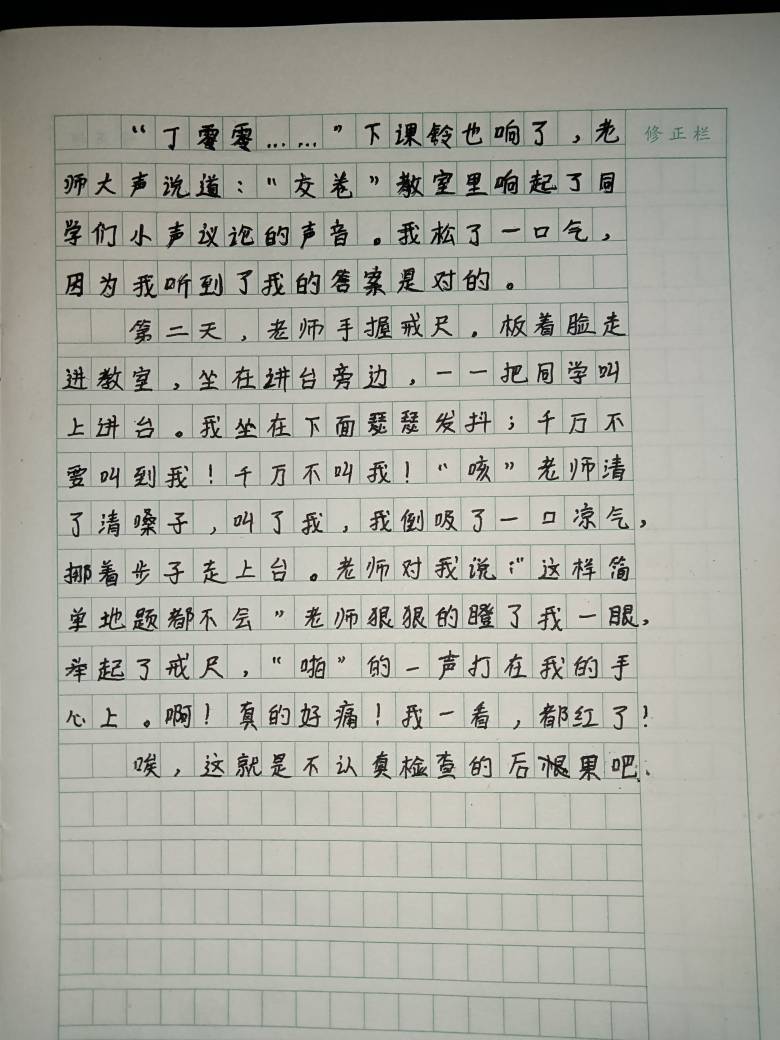 修正栏
“丁零零……”下课铃也响了，老
师大声说道：“交卷”教室里响起了同
学们小声议论的声音。我松了一口气，
因为我听到了我的答案是对的。
第二天，老师手握戒尺．板着脸走
进教室，坐在讲台旁边，一一把同学叫
上讲台。我坐在下面瑟瑟发抖；千万不
要叫到我！千万不叫我！“咳”老师清
了清嗓子，叫了我，我倒吸了一口凉气，
挪着步子走上台。老师对我说：“这样简
单地题都不会”老师狠狠的瞪了我一眼，
举起了戒尺，“啪”的一声打在我的手
心上。啊！真的好痛！我一看，都红了！
唉，这就是不认真检查的后果吧.